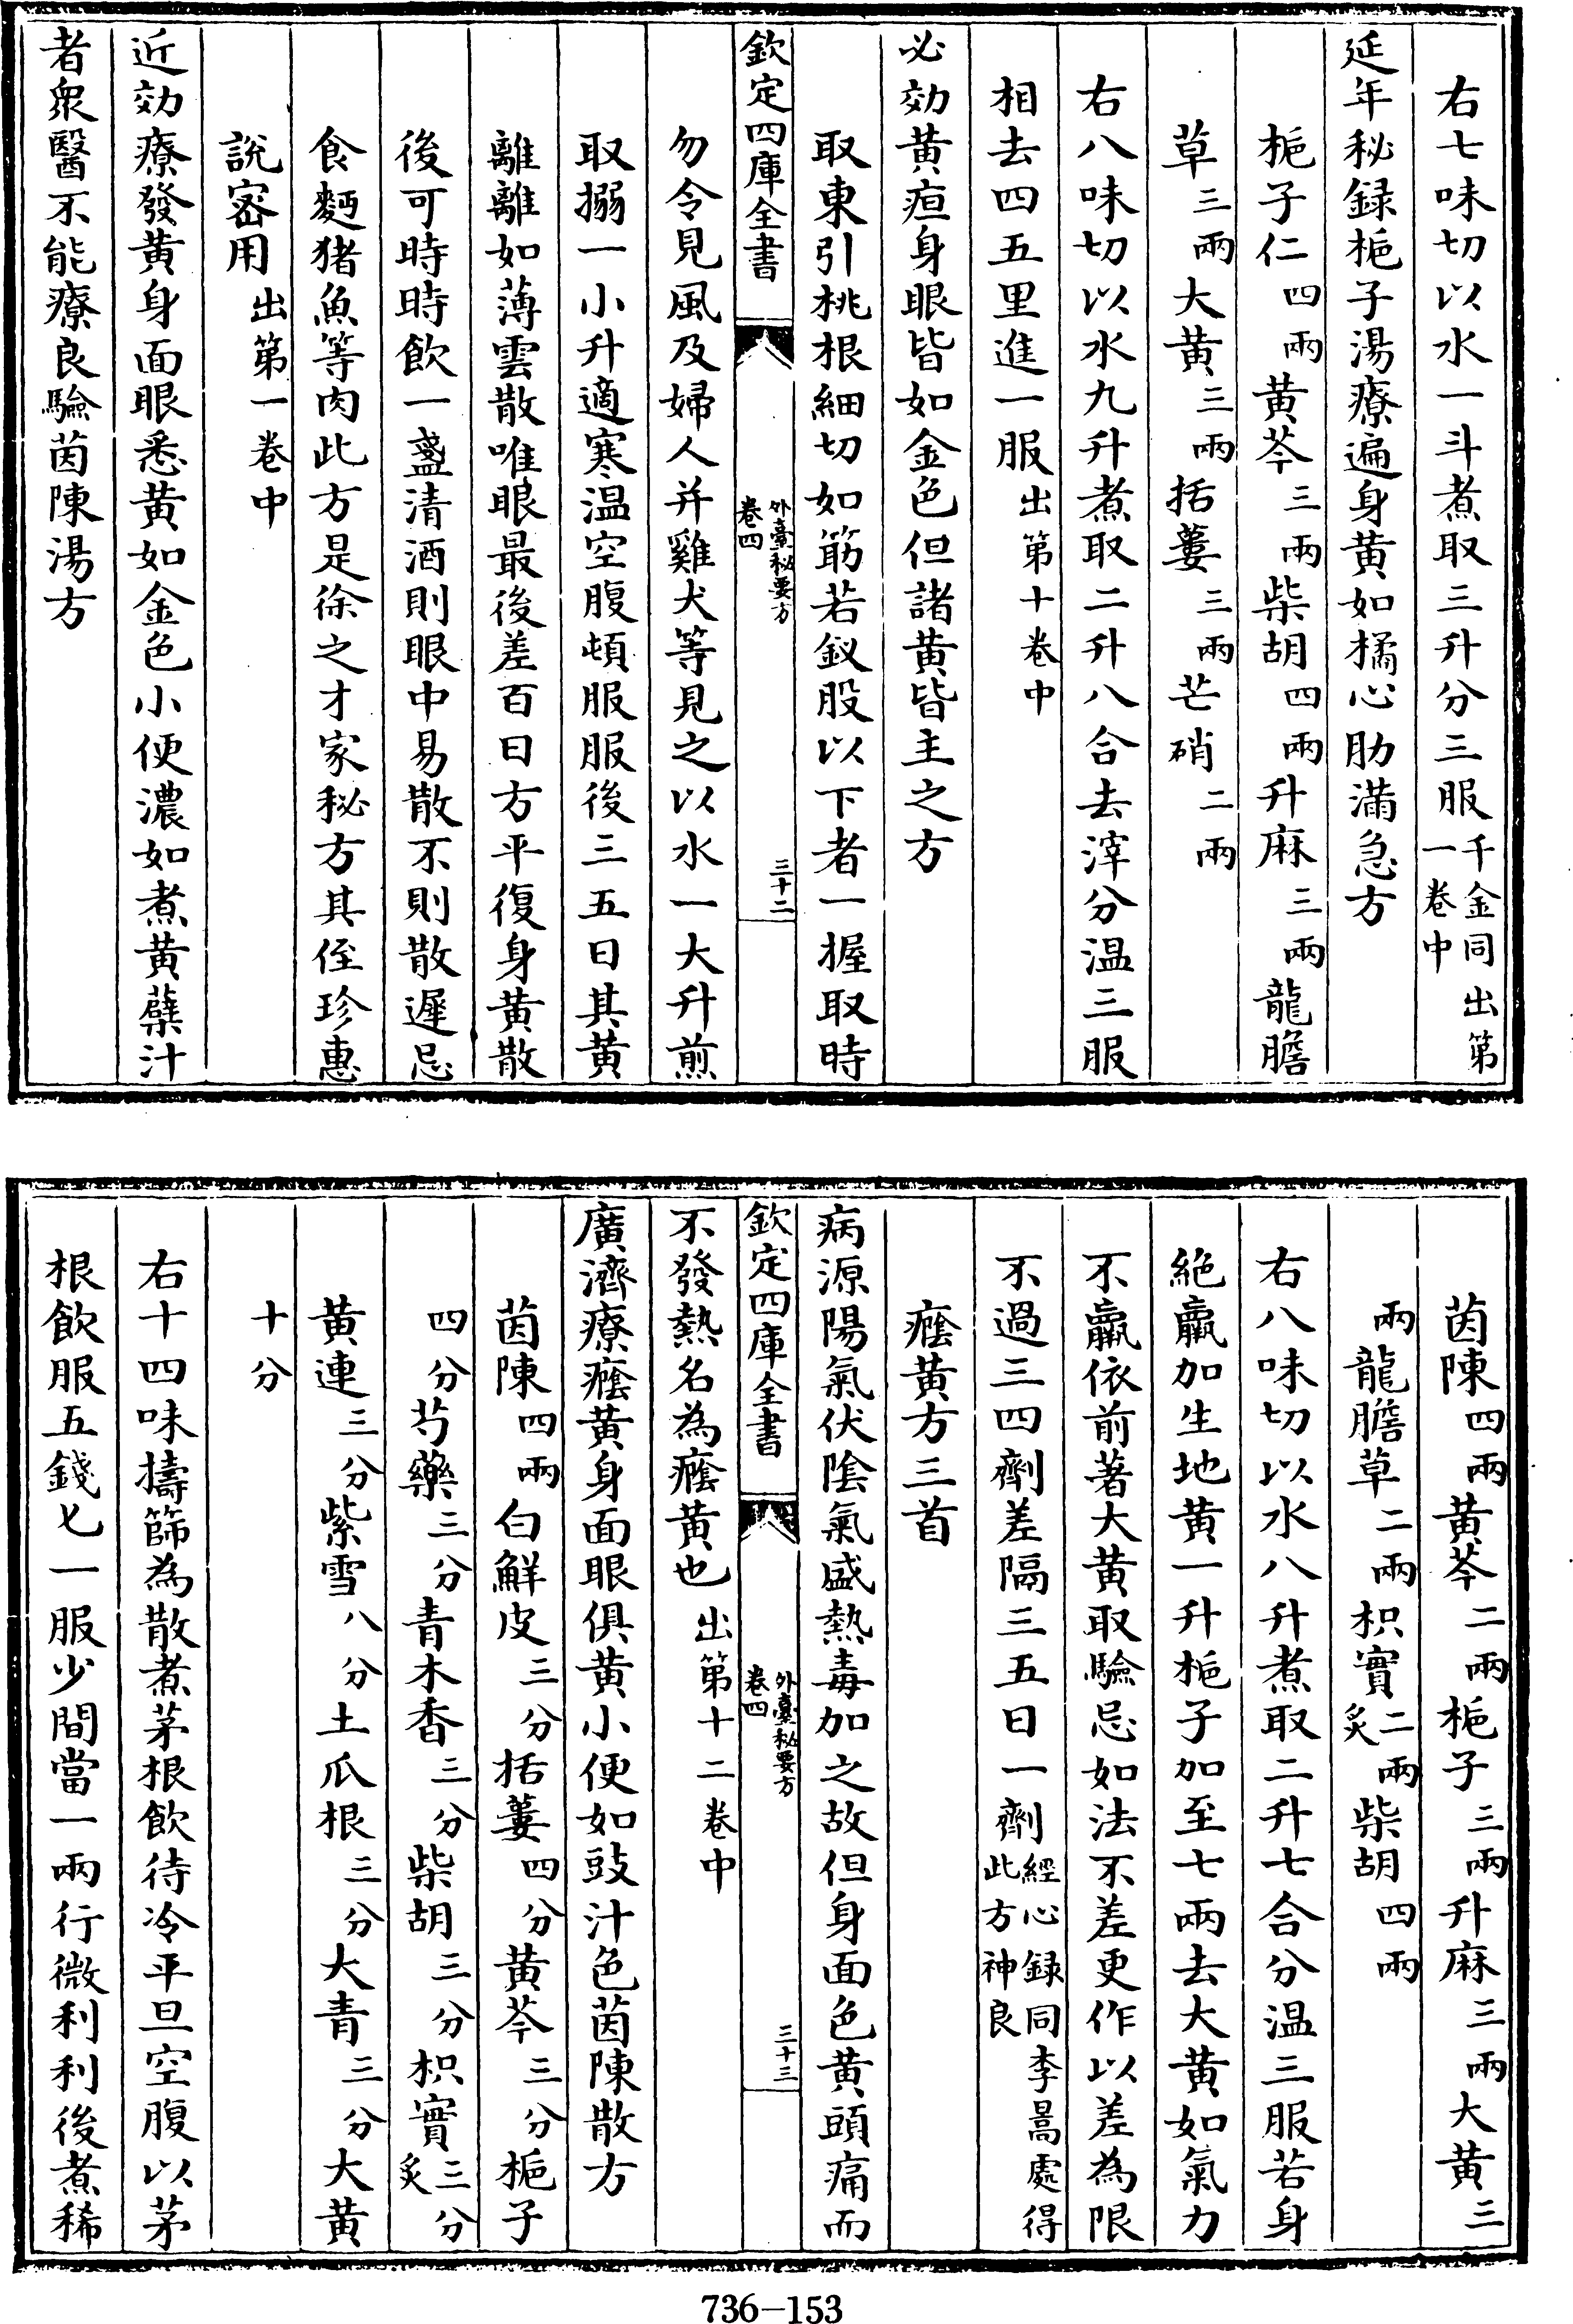 右七味切以水一斗煮取三升分三服千金同出第一卷中
延年秘録梔子湯療遍身黄如橘心肋滿急方
梔子仁四兩黄芩三兩柴胡四兩升麻三兩龍膽
草三兩大黄三兩括蔞三兩芒硝二兩
右八味切以水九升煮取二升八合去滓分温三服
相去四五里進一服出第十卷中
必効黄疸身眼皆如金色但諸黄皆主之方
取東引桃根細切如筯若釵股以下者一握取時
欽定四庫全書
外臺秘要方
卷四
三十二
勿令見風及婦人并雞犬等見之以水一大升煎
取搦一小升適寒温空腹頓服服後三五日其黄
離離如薄雲散唯眼最後差百日方平復身黄散
後可時時飲一盞清酒則眼中易散不則散遲忌
食麪猪魚等肉此方是徐之才家秘方其侄珍惠
說密用出第一卷中
近効療發黄身面眼悉黄如金色小便濃如煮黄蘖汁
者衆醫不能療良驗茵陳湯方
茵陳四兩黄芩二兩梔子三兩升麻三兩大黄三
兩龍膽草二兩枳實二兩炙柴胡四兩
右八味切以水八升煮取二升七合分温三服若身
絶羸加生地黄一升梔子加至七兩去大黄如氣力
不羸依前著大黄取驗忌如法不差更作以差為限
不過三四劑差隔三五日一劑經心録同李暠處得此方神良
癊黄方三首
病源陽氣伏陰氣盛熱毒加之故但身面色黄頭痛而
欽定四庫全書
外臺秘要方
卷四
三十三
不發熱名為癊黄也出第十二卷中
廣濟療癊黄身面眼俱黄小便如豉汁色茵陳散方
茵陳四兩白鮮皮三分括蔞四分黄芩三分梔子
四分芍藥三分青木香三分柴胡三分枳實三分炙
黄連三分紫雪八分土瓜根三分大青三分大黄
十分
右十四味擣篩為散煮茅根飲待冷平旦空腹以茅
根飲服五錢匕一服少間當一兩行微利利後煮稀
736-153